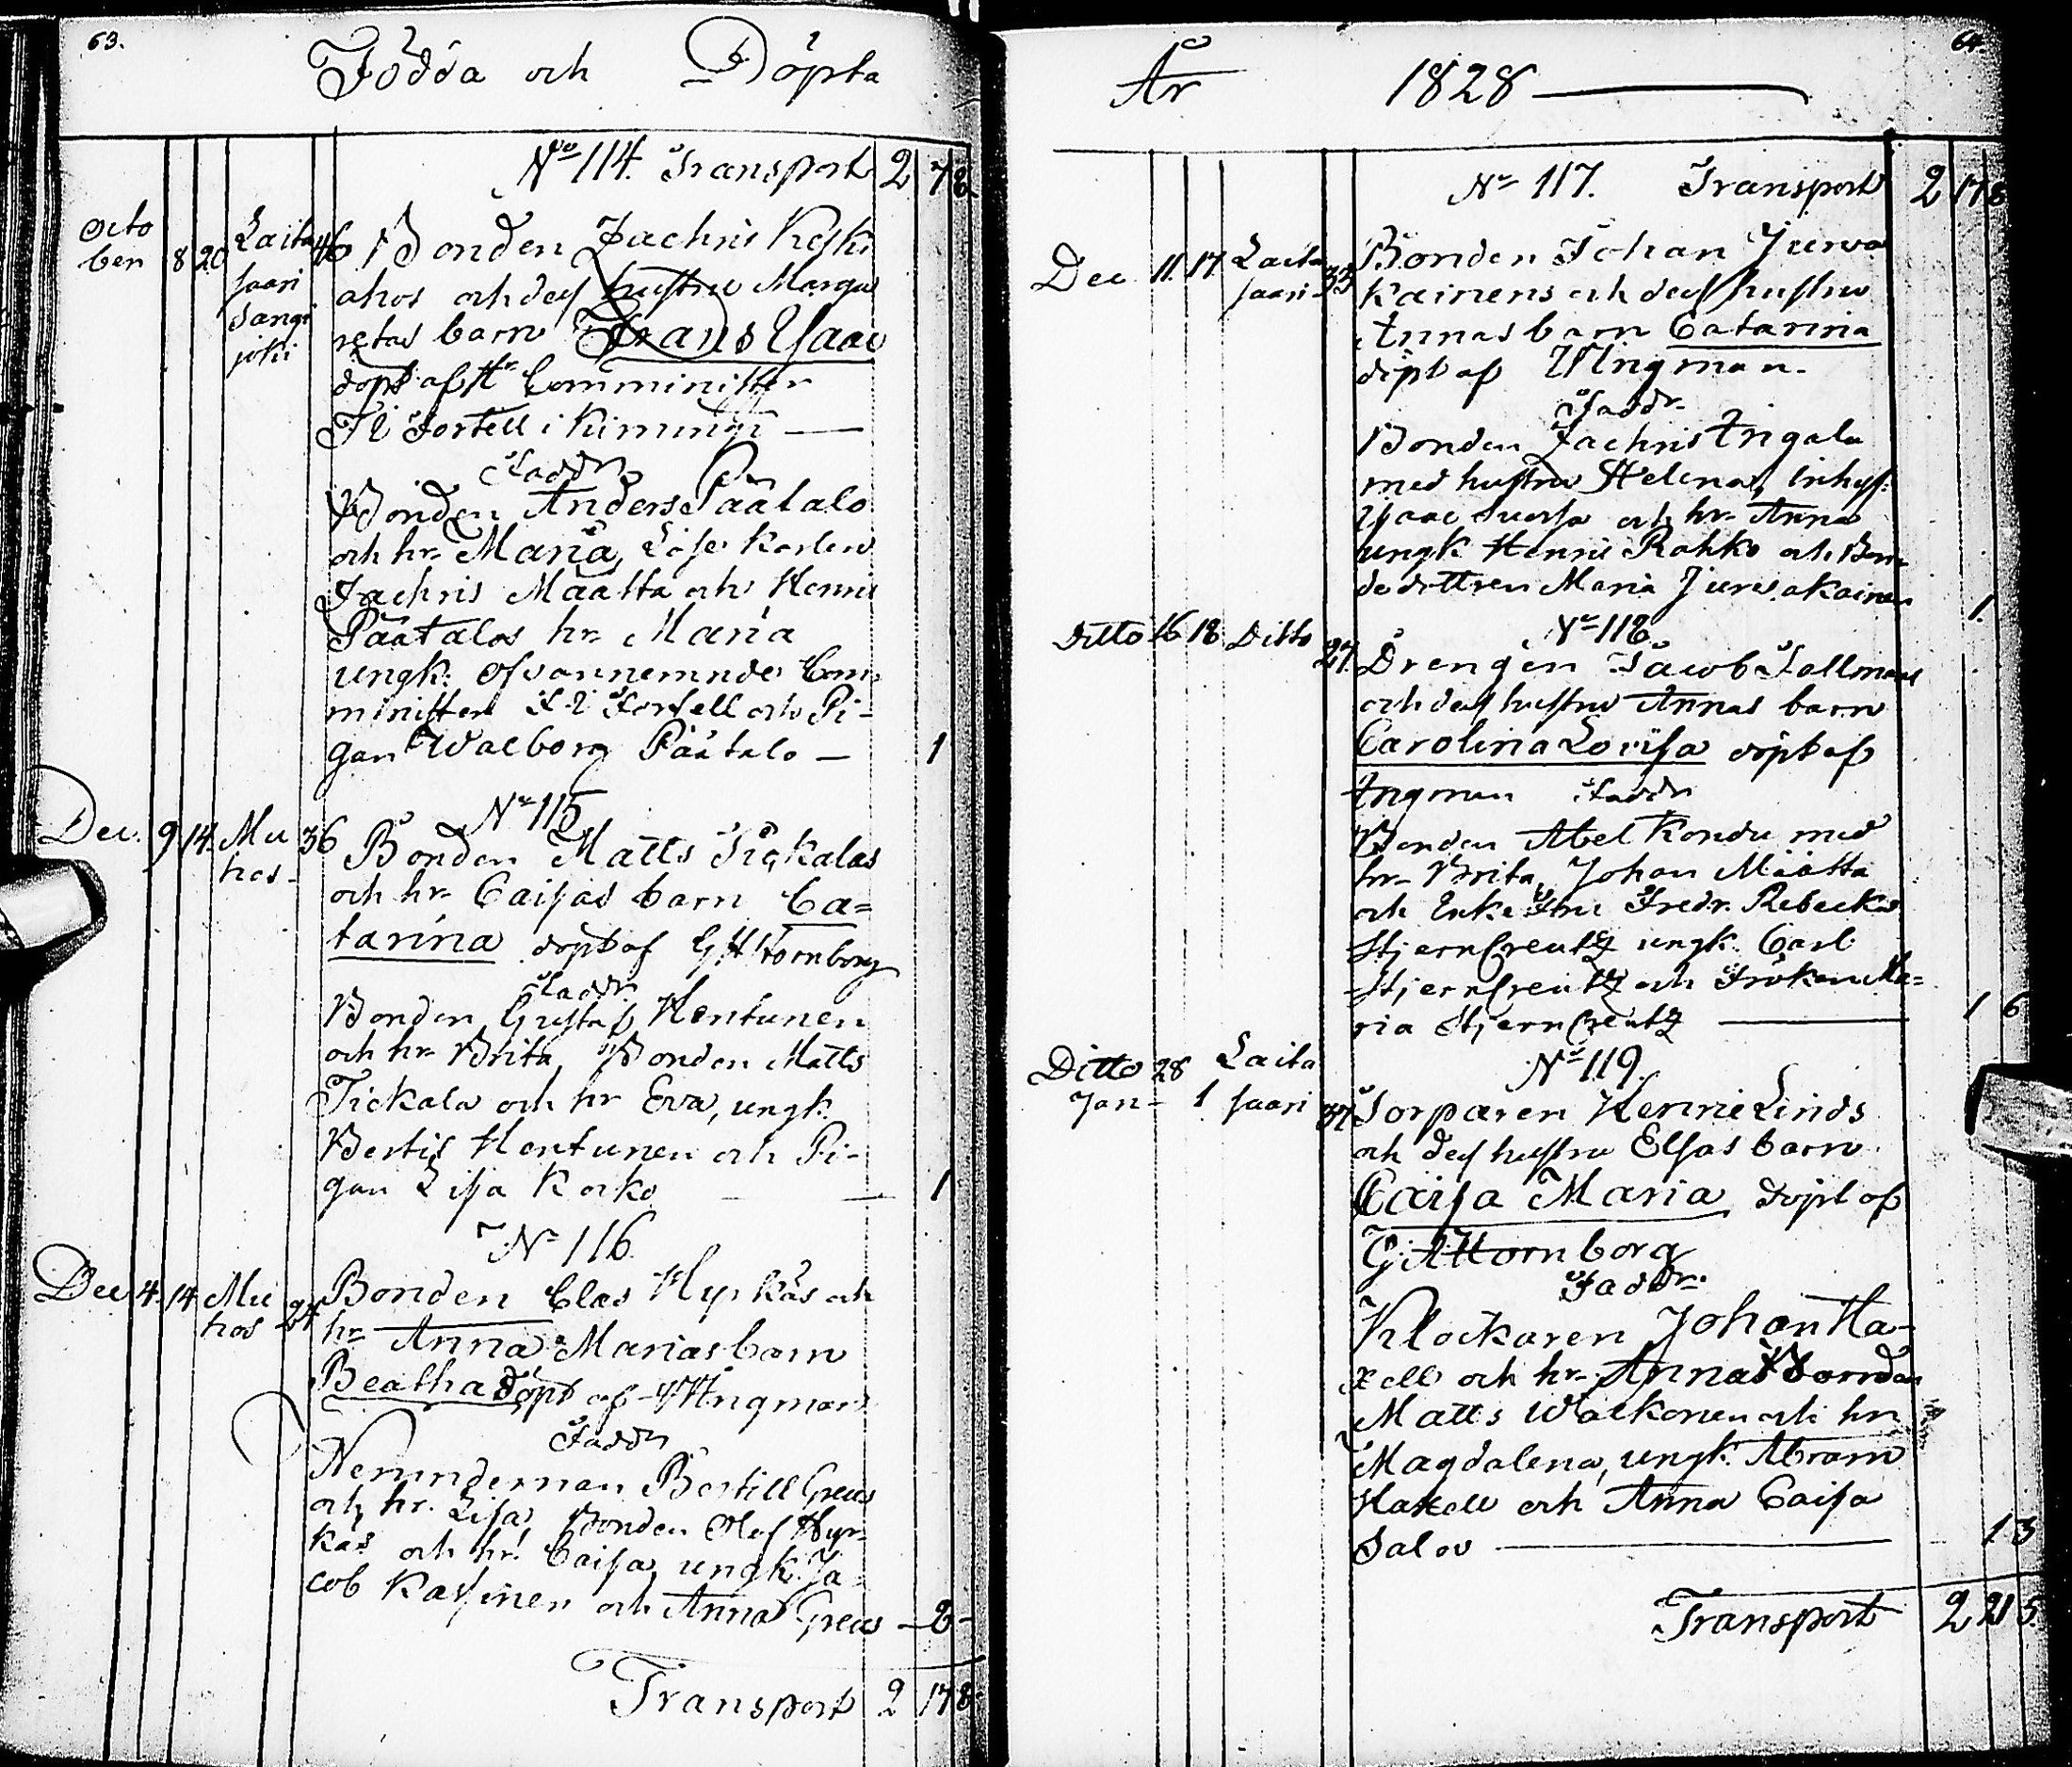 63.
Födda och Döpta
No 114. Transport 2 7 8
Octo
ber 8 20 Laita
saari
Sangi
joki
46 Bonden Zachris Keski
ahos och dess hustru Marga
retas barn Frans Isaac
döpt af Hr Comminister
F I Forsell i Kiminge —
Faddr
Bonden Anders Päätalo
och hr Maria, Lösekarlen
Zachris Määtta och Henric
Päätalos hr Maria
ungk. ofvannemnde Com
minister F. I Forsell och Pi-
gan Walborg Päätalo — 1
No 115
Dec. 9 14. Mu
hos 36 Bonden Matts Tickalas
och hr Caisas barn Ca=
tarina döpt af G H Hornborg
Faddr.
Bonden Gustaf Hentunen
och hr Brita, Bonden Matts
Tickala och hr Eva, ungk.
Bertil Hentunen och Pi-
gan Lisa Korko — 1
No 116.
Dec 4. 14 Mu
hos 24 Bonden Clas Hyrkäs och
hr Anna Marias barn
Beatha döpt af Ingman
Faddr
Nemndeman Bertill Greus
och hr. Lisa, Bonden Olof Hyr-
käs och hr. Caisa, ungk. Ja-
cob Kasinen och Anna Greus — 2 -
Transport 2 17 8
64.
År 1828
No 117. Transport 2 17 8
Dec 11. 17 Laita
saari 33 Bonden Johan Jurva
kainens och dess hustru
Annas barn Catarina
döpt af Ingman.
Faddr.
Bonden Zachris Angala
med hustru Helena, inhys:
Isaac Suorsa och hr Anna
ungk Henric Rahko och Bon
dedottren Maria Jurvakainen 1.
No 118.
Ditto 16 18 Ditto 27. Drengen Jacob Tallmans
och dess hustru Annas barn
Carolina Lovisa döpt af
Ingman Faddr
Bonden Abel Kondu med
hr Brita, Johan Määtta
och Enke Fru Fredr. Rebecka
StjernCreutz ungk. Carl
StjernCreutz och Fröken Ma=
ria StjernCreutz — 1 6
No 119.
Ditto 28 Laita
Jan- 1 saari 37 Torparen Henric Linds
och dess hustru Elsas barn
Caisa Maria döpt af
G H Hornborg
Faddr.
Klockaren Johan Ha-
xell och hr Anna, Bonden
Matts Walkonen och hr
Magdalena, ungk. Abram
Haxell och Anna Caisa
Salov — 1 3
Transport 2 21 5.